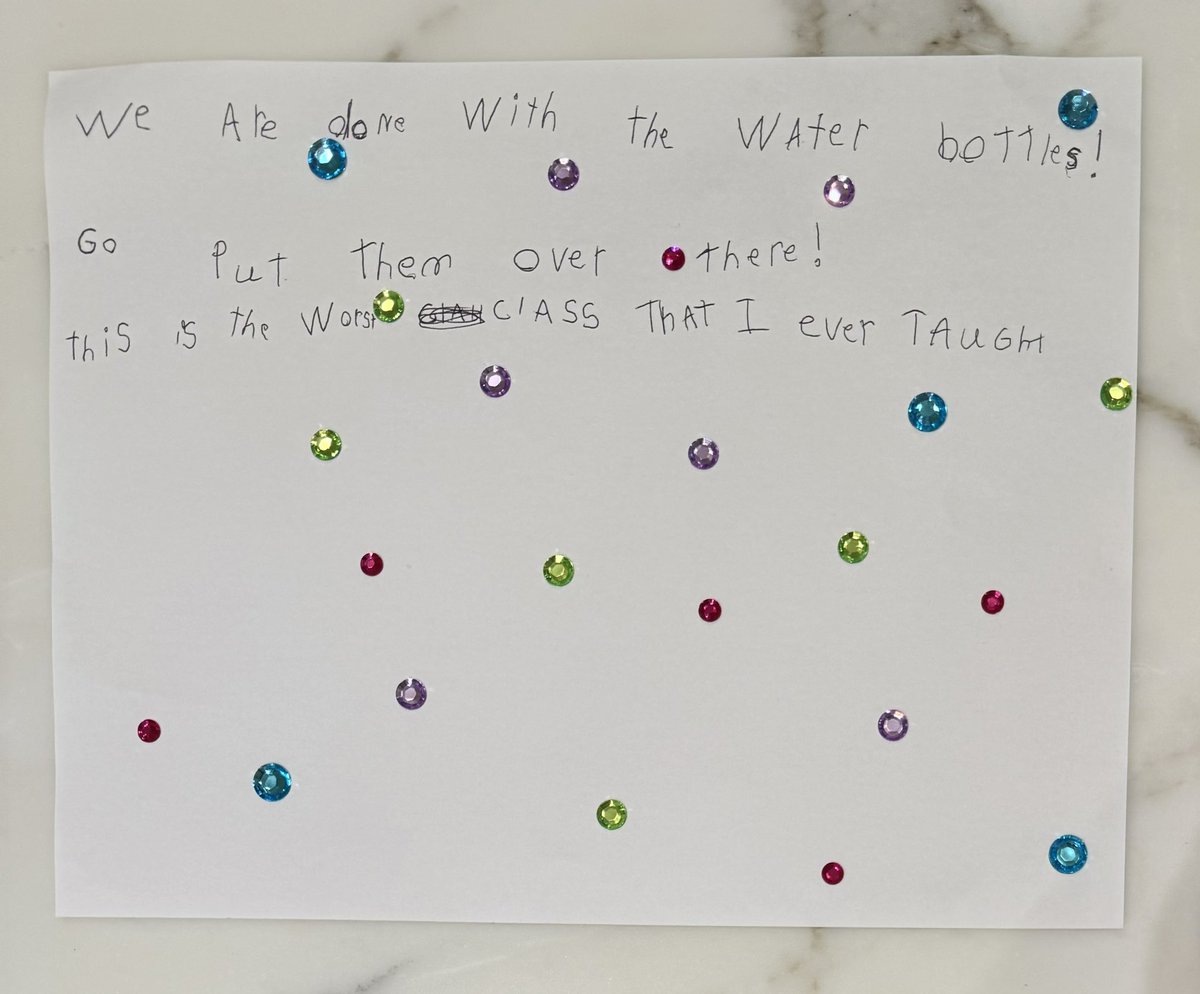 We Are done With the WAter boTTles!
Go Put Them over there!
this is the Worst ClASS ThAT I ever TAuGht